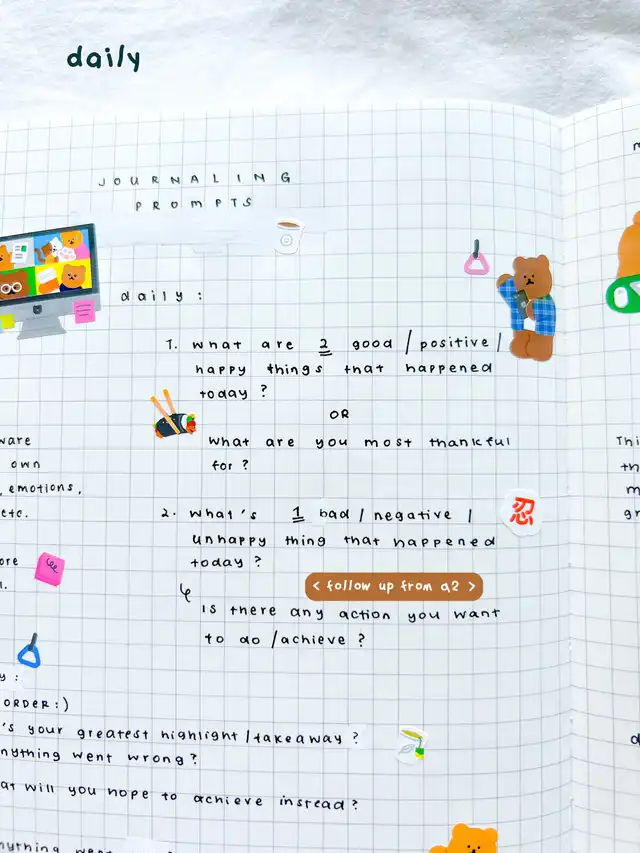 daily
JOURNALING
PROMPTS
daily :
1. what are 2 good / positive /
happy things that happened
today ?
OR
what are you most thankful
for ?
2. what's 1 bad / negative /
unhappy thing that happened
today ?
忍
< follow up from q2 >
↳ is there any action you want
to do / achieve ?
own
emotions,
etc.
y :
ORDER :)
's your greatest highlight / takeaway ?
nything went wrong ?
at will you hope to achieve instead ?
nything